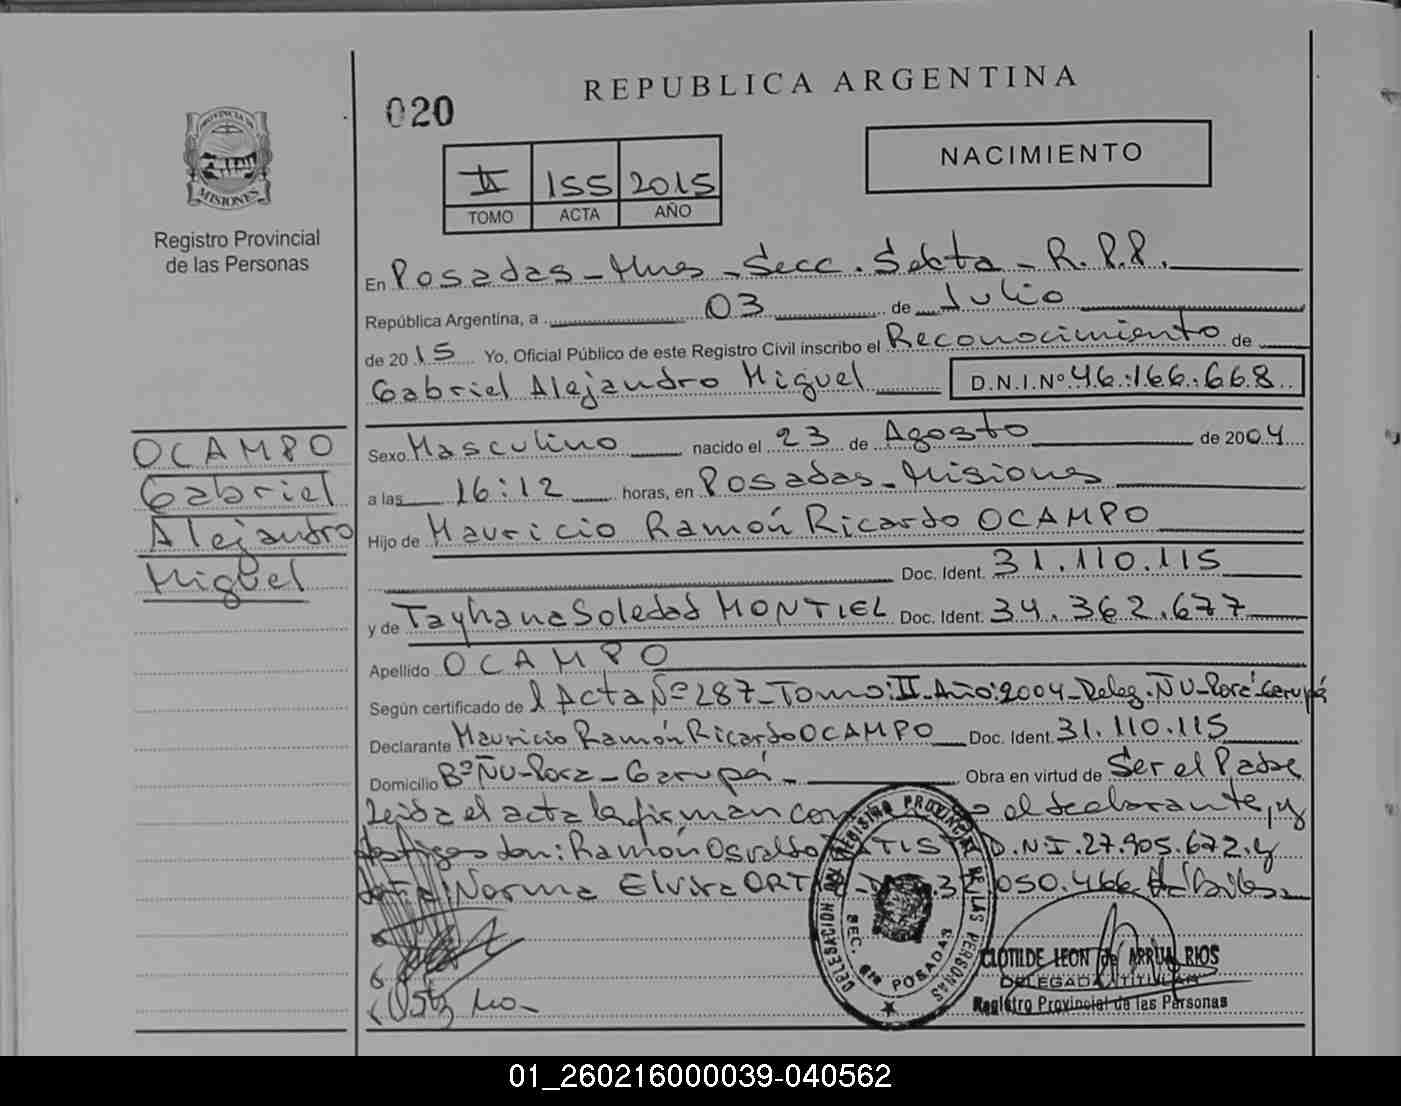 REPUBLICA ARGENTINA
020
NACIMIENTO
PROVINCIA DE
MISIONES
Registro Provincial
de las Personas
II 155 2015
TOMO ACTA AÑO
En Posadas - Mnes - Secc. Sexta - R.P.P.
República Argentina, a 03 de Julio
de 2015 Yo, Oficial Público de este Registro Civil inscribo el Reconocimiento de
Gabriel Alejandro Miguel D.N.I. Nº 46.166.668
OCAMPO
Gabriel
Alejandro
Miguel
Sexo Masculino nacido el 23 de Agosto de 2004
a las 16:12 horas, en Posadas - Misiones
Hijo de Mauricio Ramón Ricardo OCAMPO
Doc. Ident. 31.110.115
y de Tayhana Soledad MONTIEL Doc. Ident. 34.362.677
Apellido OCAMPO
Según certificado de l Acta Nº 287 - Tomo: II - Año: 2004 - Deleg. Ñu - Porá - Garupá
Declarante Mauricio Ramón Ricardo OCAMPO Doc. Ident. 31.110.115
Domicilio Bº Ñu - Pora - Garupá - Obra en virtud de Ser el Padre
Leida el acta la firman el declarante, y
testigos son: Ramón Osvaldo D.N.I. 27.905.672 y
Norma Elvira 050.466
DELEGACION DEL REGISTRO PROVINCIAL DE LAS PERSONAS
SEC. 6ta POSADAS
CLOTILDE LEON de ARRUA RIOS
DELEGADA TITULAR
Registro Provincial de las Personas
01_260216000039-040562